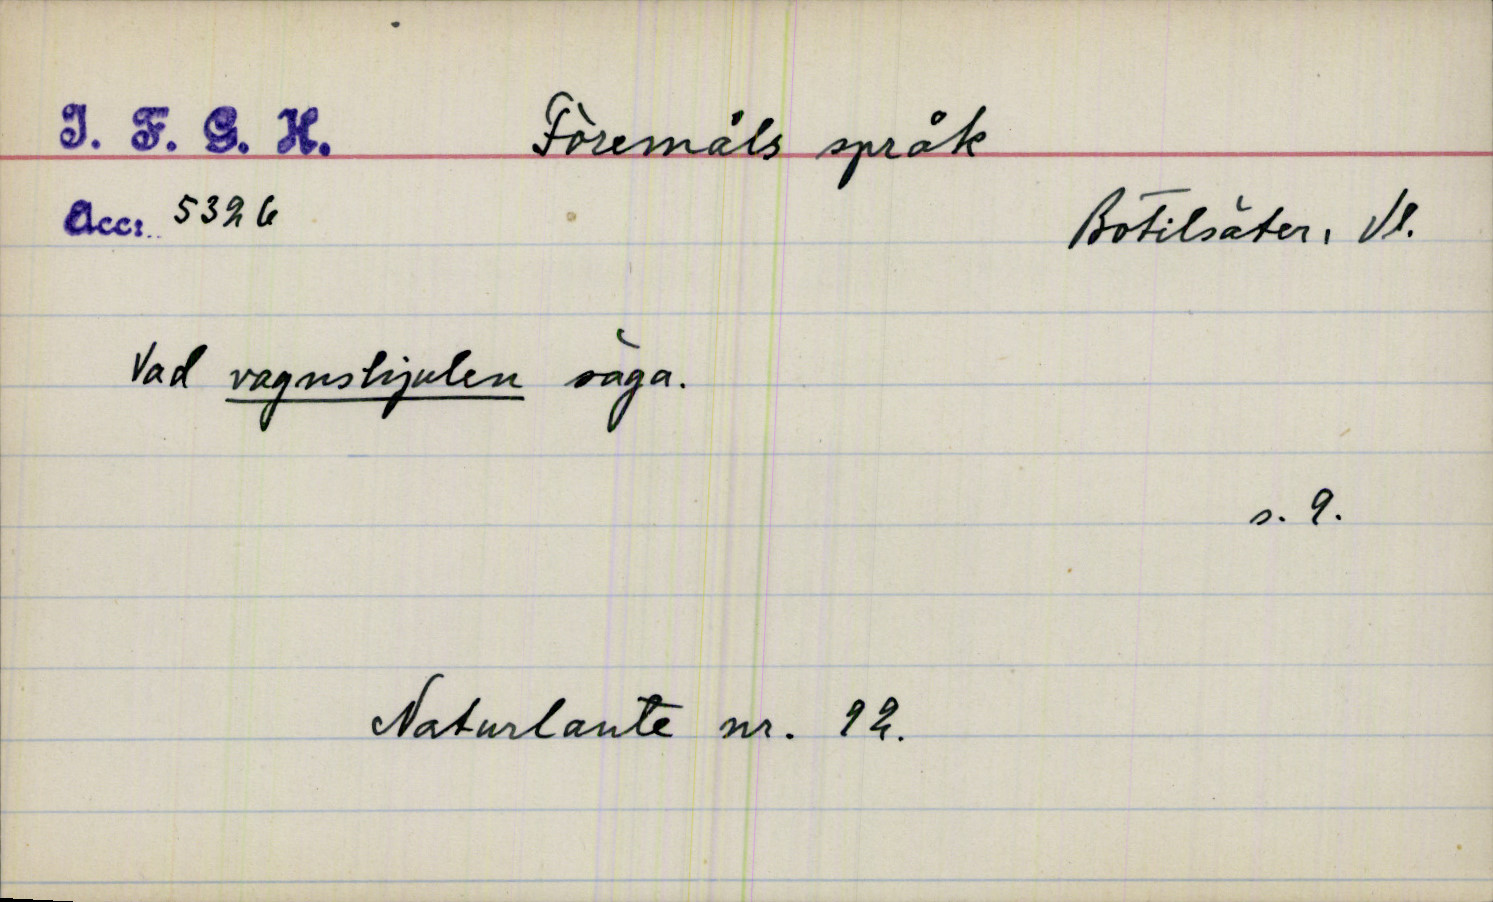 I. F. G. H. Föremåls språk
Acc: 5326
Botilsäter, Vl.
Vad vagnshjulen säga.
s. 9.
Naturlaute nr. 92.